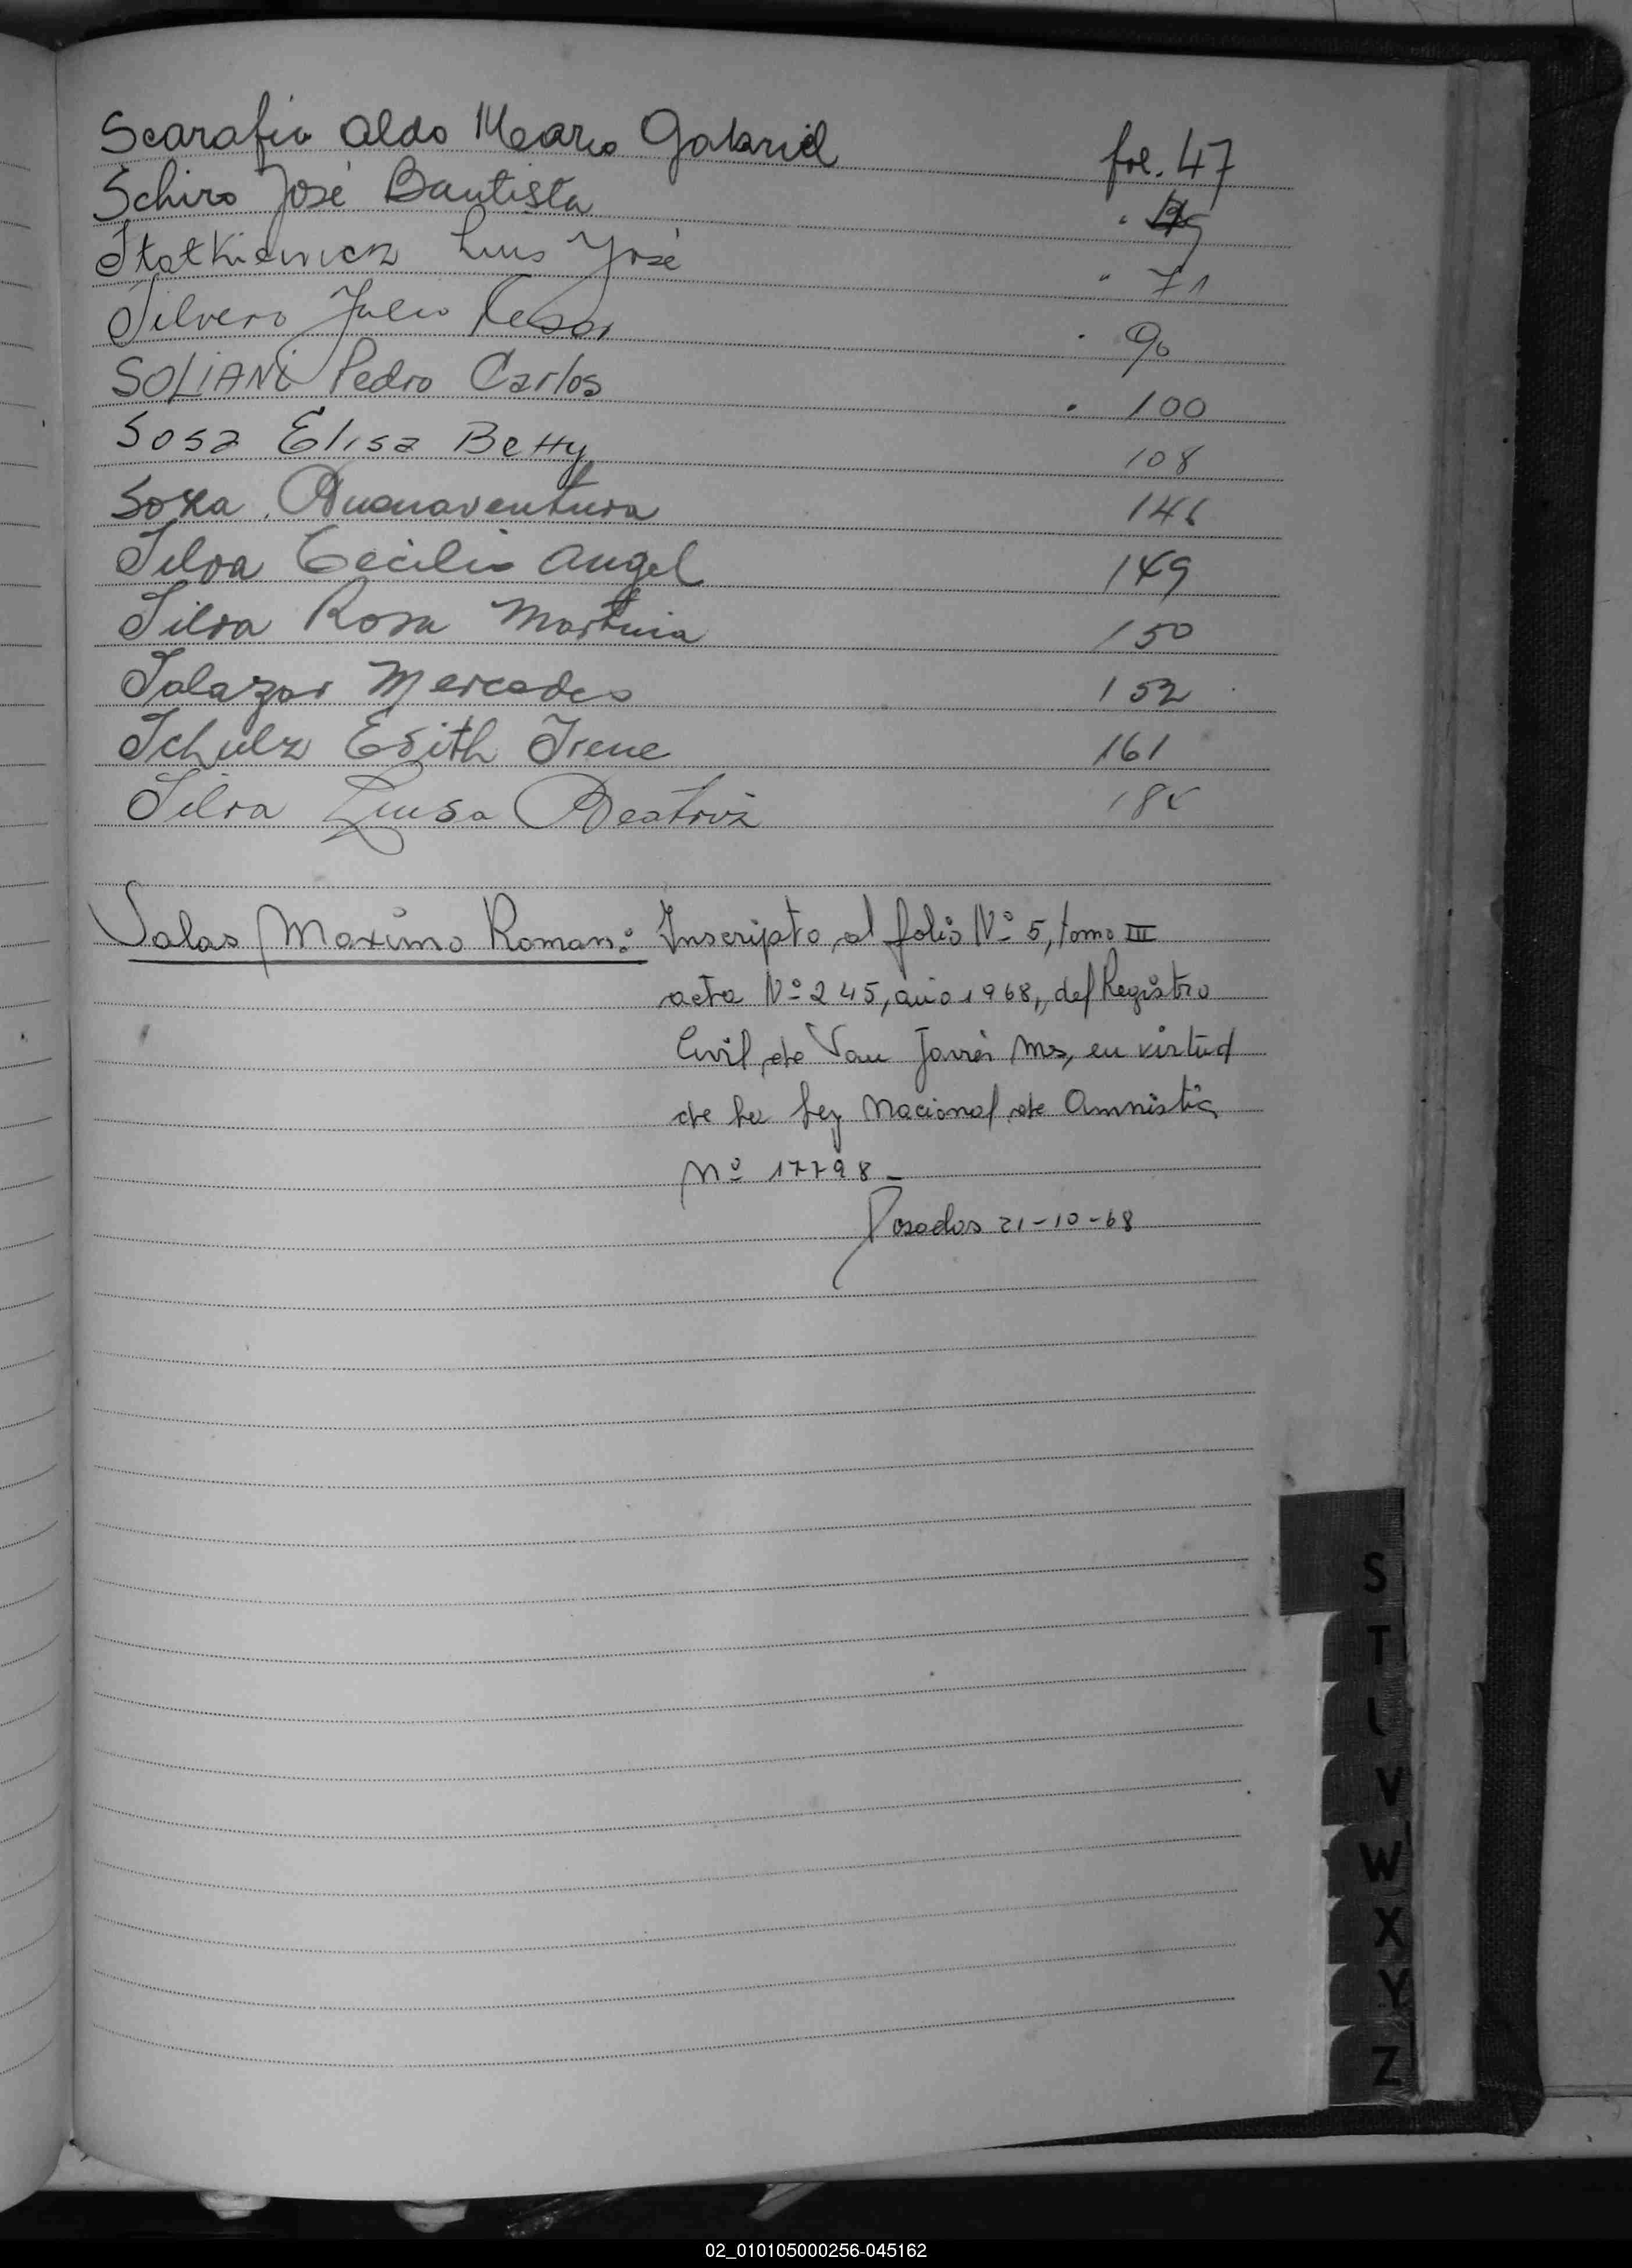 Scarafio Aldo Mario Gabriel fol. 47
Schiro José Bautista "
Statkiewicz Luis José " 71
Silvero Julio Cesar " 90
SOLIANI Pedro Carlos " 100
Sosa Elisa Betty 108
Sosa Buenaventura 146
Silva Cecilio Angel 149
Silva Rosa Martina 150
Salazar Mercedes 152
Schulz Edith Irene 161
Silva Luisa Beatriz
Salas Maximo Roman: Inscripto al folio Nº 5, tomo III
acta Nº 245, año 1968, del Registro
Civil de San Javier Ms, en virtud
de la Ley Nacional de Amnistia
Nº 17798_
Posadas 21-10-68
S
T
V
W
X
Y
Z
02_010105000256-045162